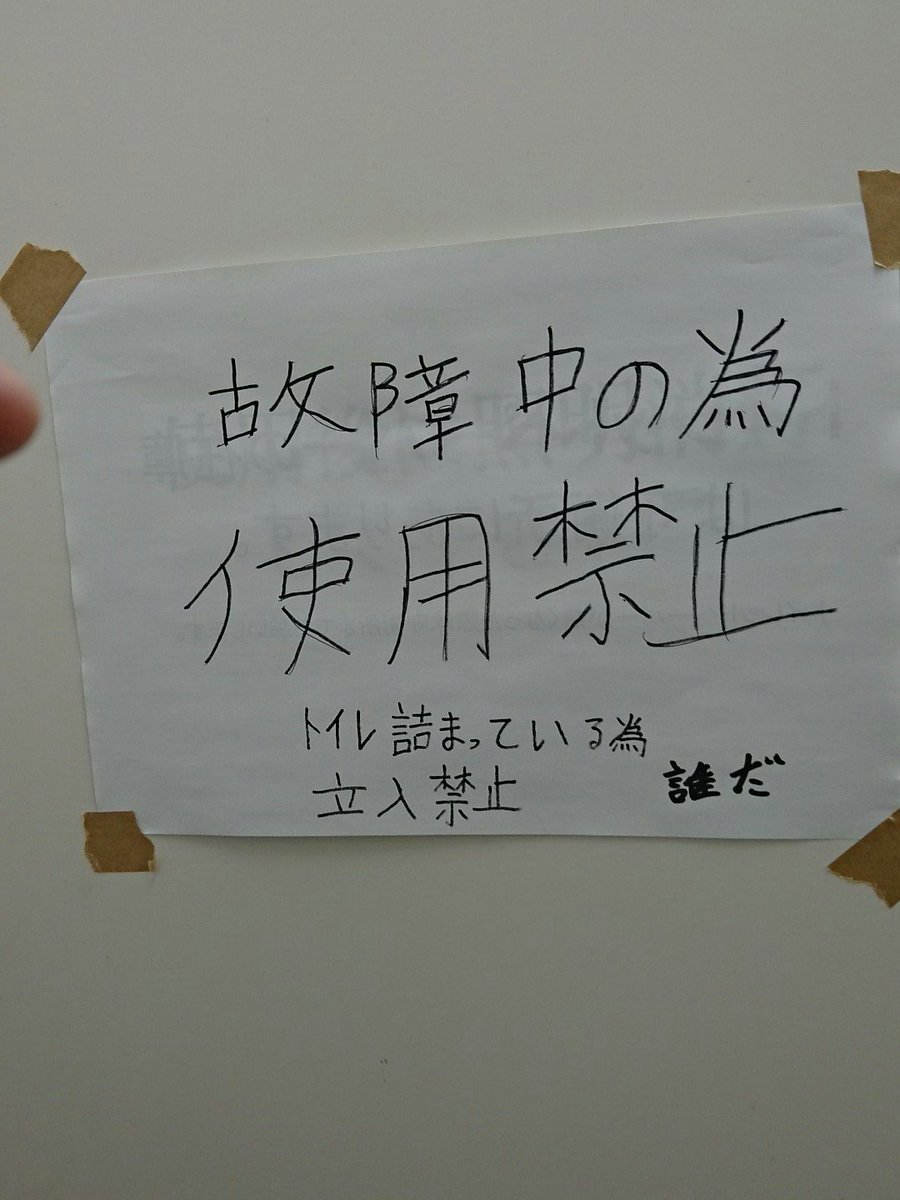 故障中の為
使用禁止
トイレ詰まっている為
立入禁止
誰だ